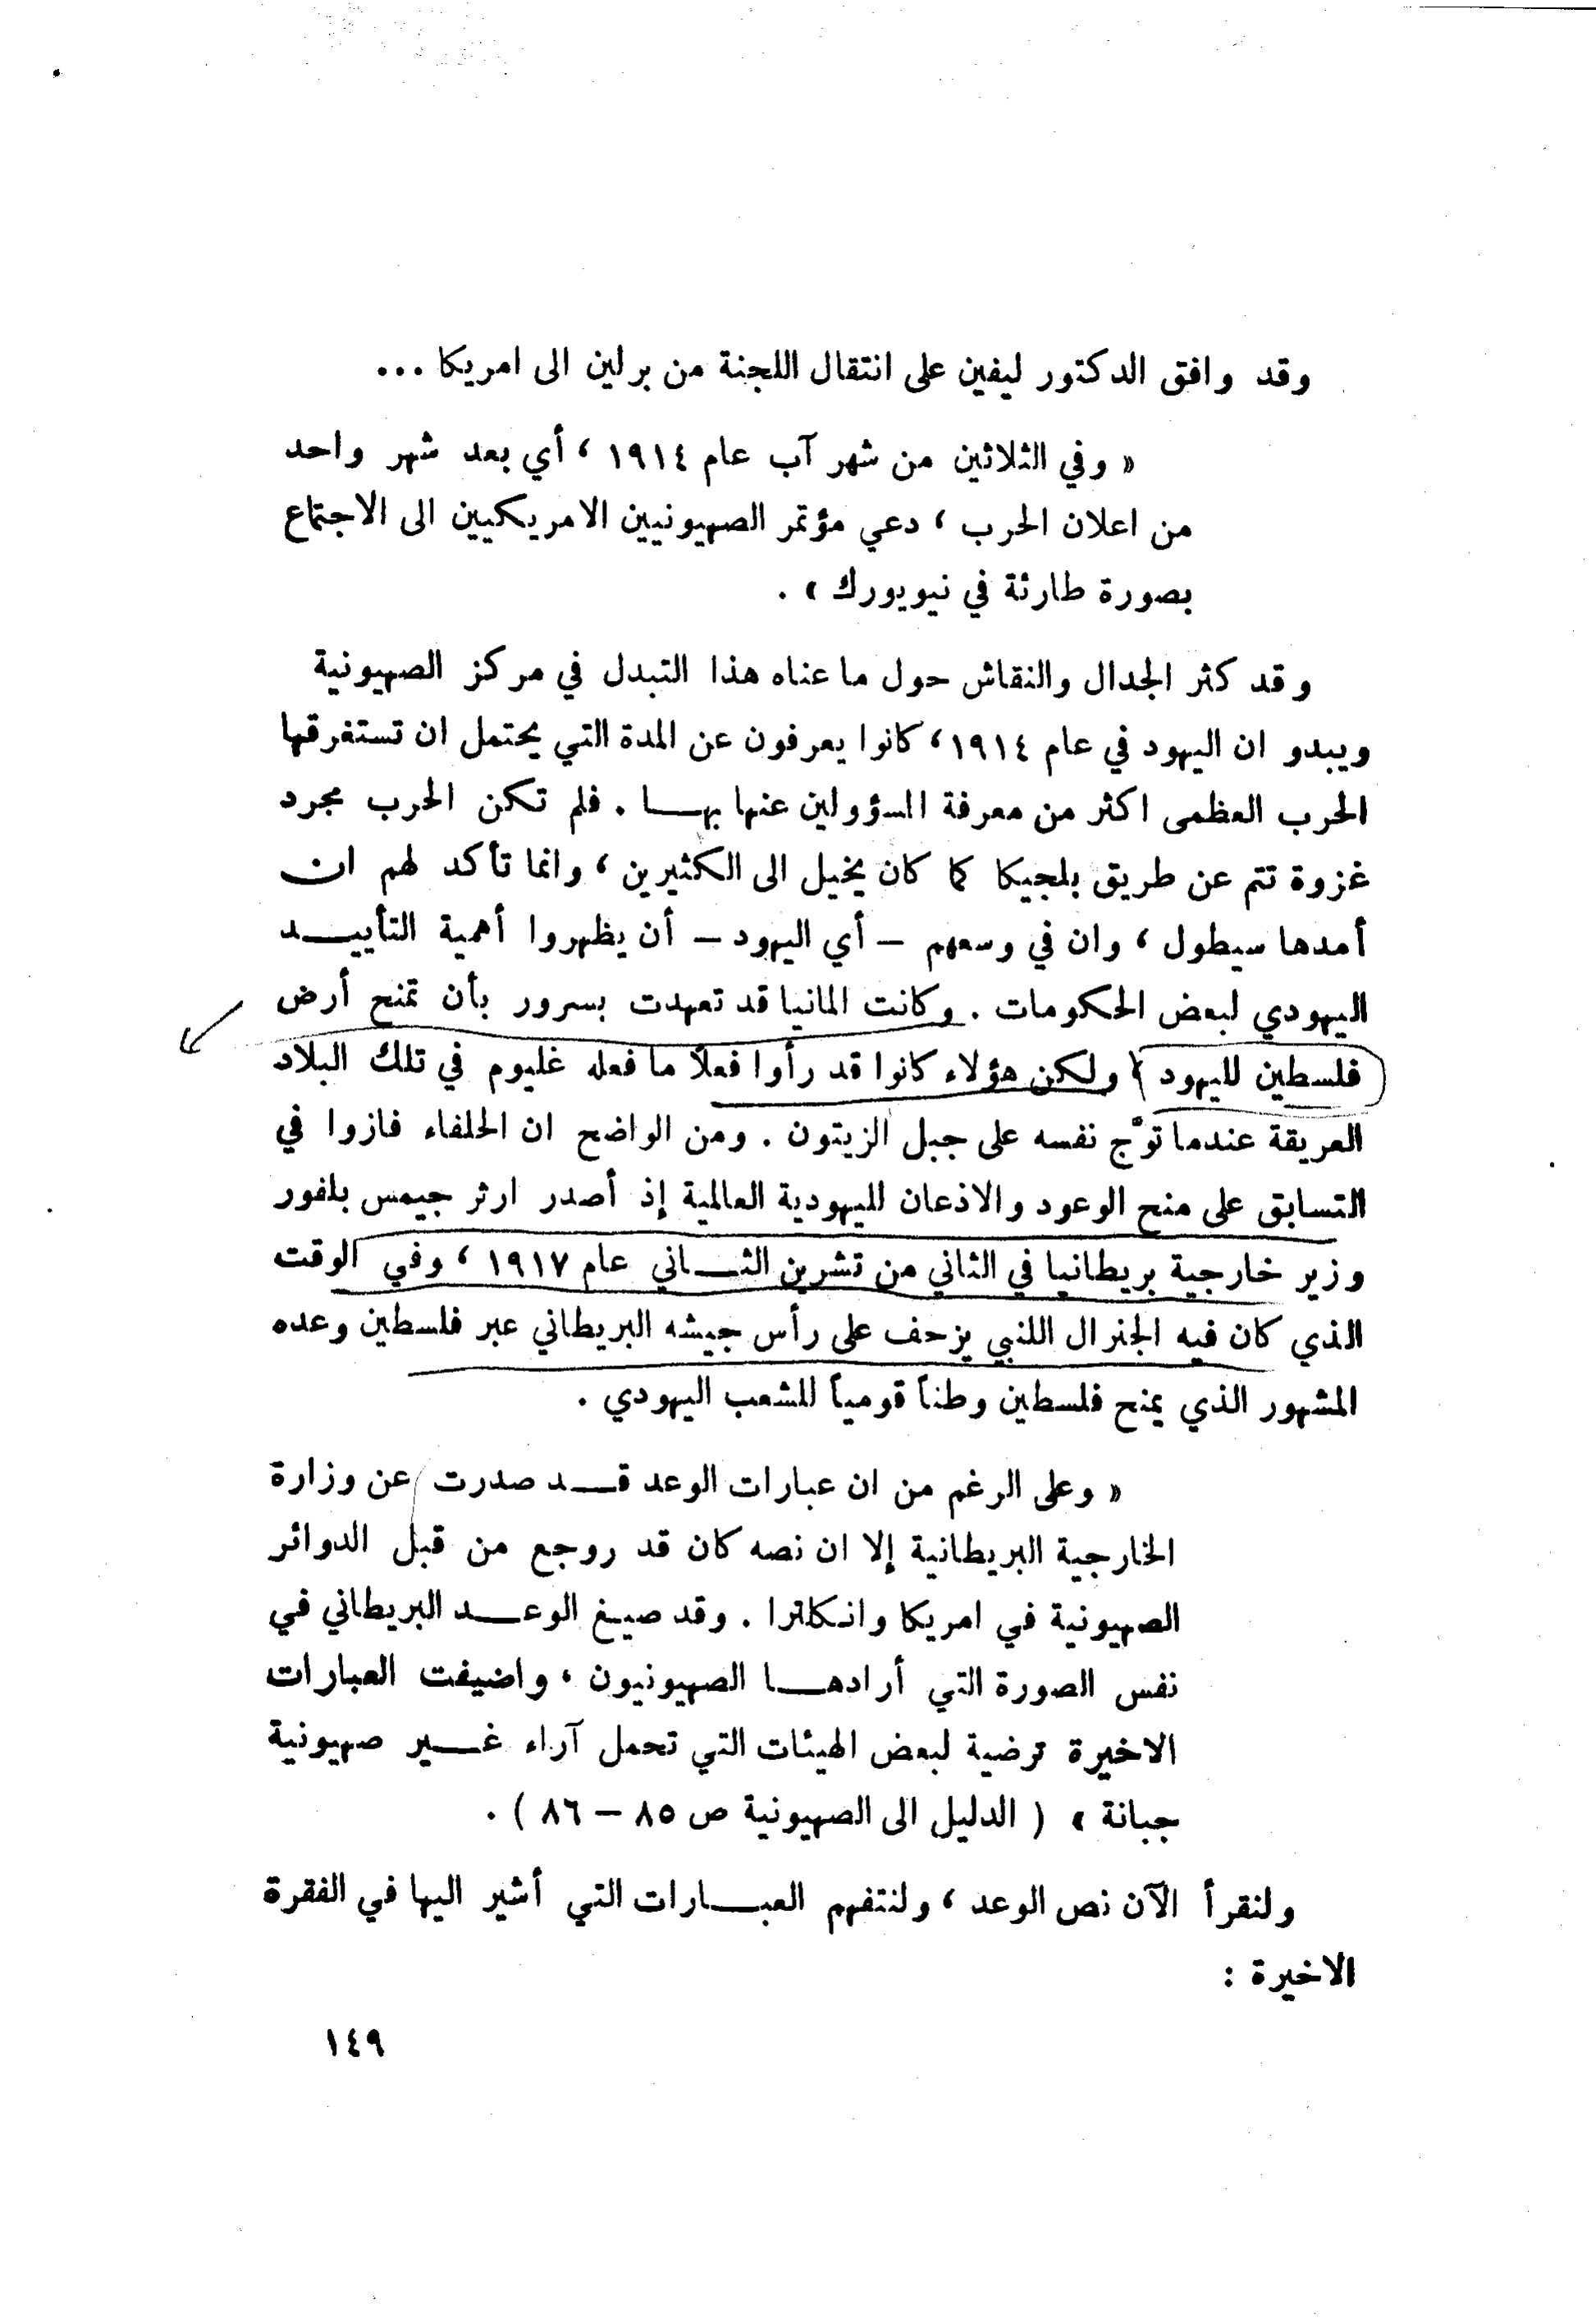 وقد وافق الدكتور ليفين على انتقال اللجنة من برلين الى امريكا ...
« وفي الثلاثين من شهر آب عام ١٩١٤ ، أي بعد شهر واحد
من اعلان الحرب ، دعي مؤتمر الصهيونيين الامريكيين الى الاجتماع
بصورة طارئة في نيويورك » .
وقد كثر الجدال والنقاش حول ما عناه هذا التبدل في مركز الصهيونية
ويبدو ان اليهود في عام ١٩١٤ ، كانوا يعرفون عن المدة التي يحتمل ان تستغرقها
الحرب العظمى اكثر من معرفة المسؤولين عنها بهـــا . فلم تكن الحرب مجرد
غزوة تتم عن طريق بلجيكا كما كان يخيل الى الكثيرين ، وانما تأكد لهم ان
أمدها سيطول ، وان في وسعهم – أي اليهود – أن يظهروا أهمية التأييـــد
اليهودي لبعض الحكومات . وكانت المانيا قد تعهدت بسرور بأن تمنح أرض
فلسطين لليهود ، ولكن هؤلاء كانوا قد رأوا فعلاً ما فعله غليوم في تلك البلاد
العريقة عندما توّج نفسه على جبل الزيتون . ومن الواضح ان الحلفاء فازوا في
التسابق على منح الوعود والاذعان لليهودية العالمية إذ أصدر ارثر جيمس بلفور
وزير خارجية بريطانيا في الثاني من تشرين الثـــاني عام ١٩١٧ ، وفي الوقت
الذي كان فيه الجنرال اللنبي يزحف على رأس جيشه البريطاني عبر فلسطين وعده
المشهور الذي يمنح فلسطين وطناً قومياً للشعب اليهودي .
« وعلى الرغم من ان عبارات الوعد قـــد صدرت عن وزارة
الخارجية البريطانية إلا ان نصه كان قد روجع من قبل الدوائر
الصهيونية في امريكا وانكلترا . وقد صيغ الوعـــد البريطاني في
نفس الصورة التي أرادهـــا الصهيونيون ، واضيفت العبارات
الاخيرة ترضية لبعض الهيئات التي تحمل آراء غـــير صهيونية
جبانة » ( الدليل الى الصهيونية ص ٨٥ – ٨٦ ) .
ولنقرأ الآن نص الوعد ، ولنتفهم العبـــارات التي أشير اليها في الفقرة
الاخيرة :
١٤٩